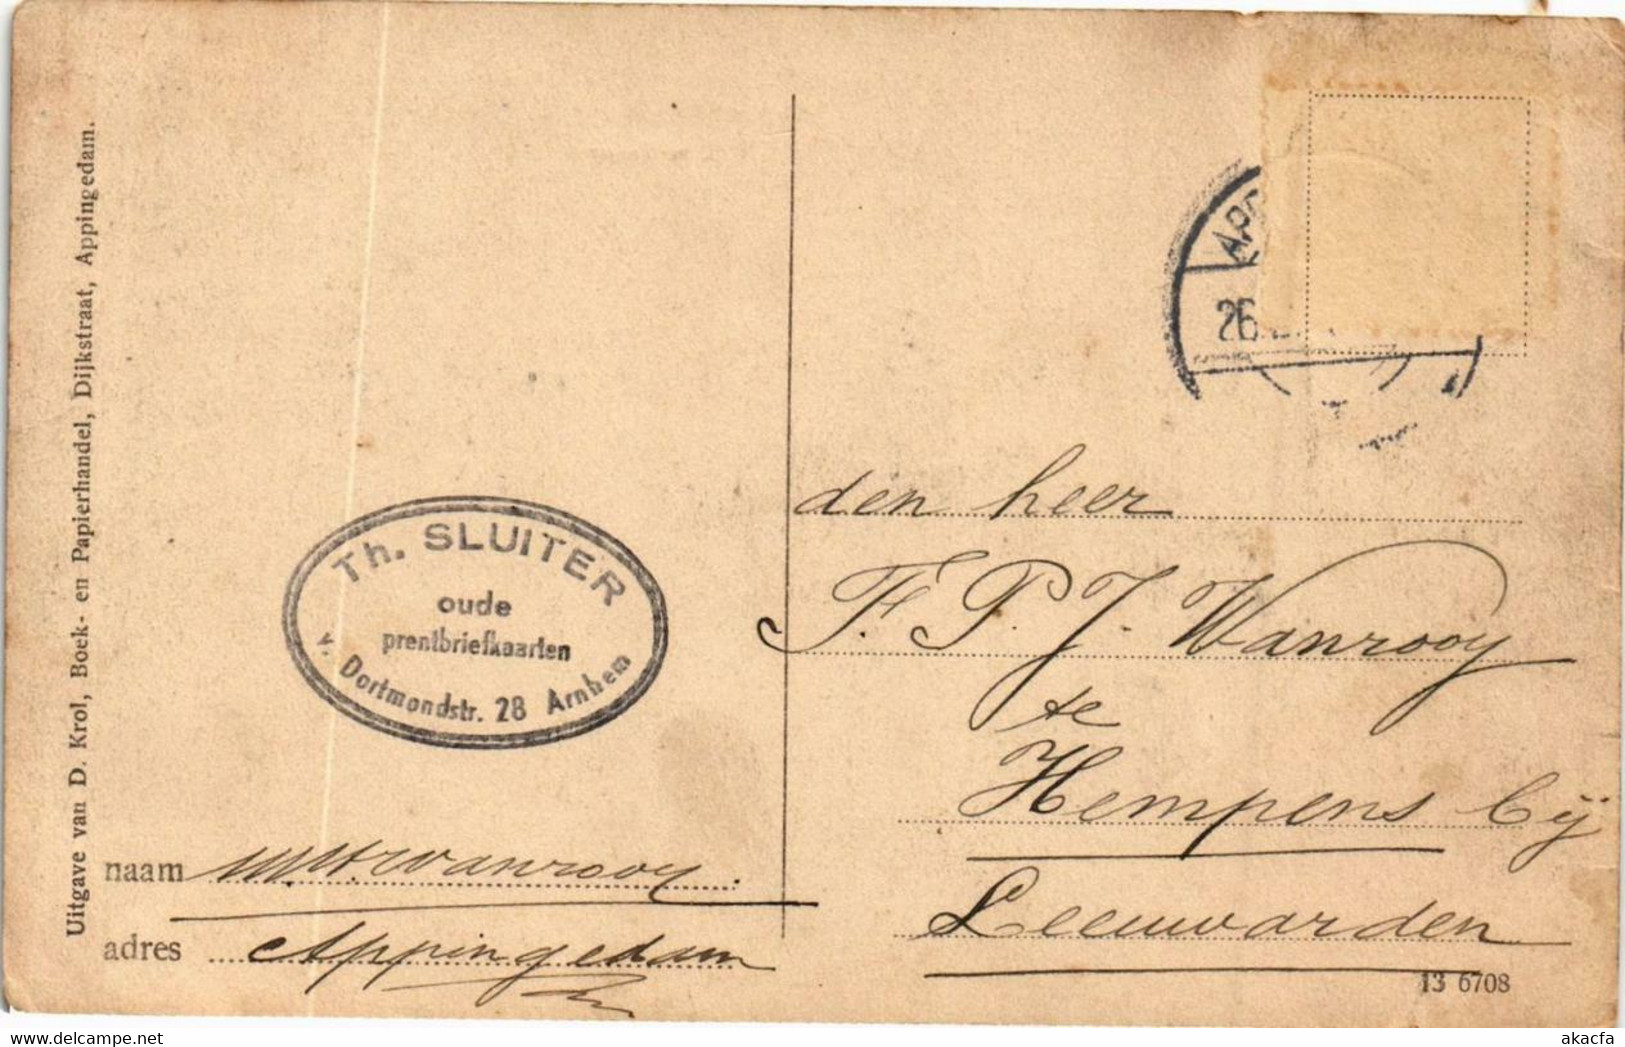 Uitgave van D. Krol, Boek- en Papierhandel, Dijkstraat, Appingedam.
26
den heer
F. P. J. Wanrooy
te
Hempens bij
Leeuwarden
Th. SLUITER
oude
prentbriefkaarten
v. Dortmondstr. 28 Arnhem
naam Wanrooy
adres Appingedam
13 6708
akacfa